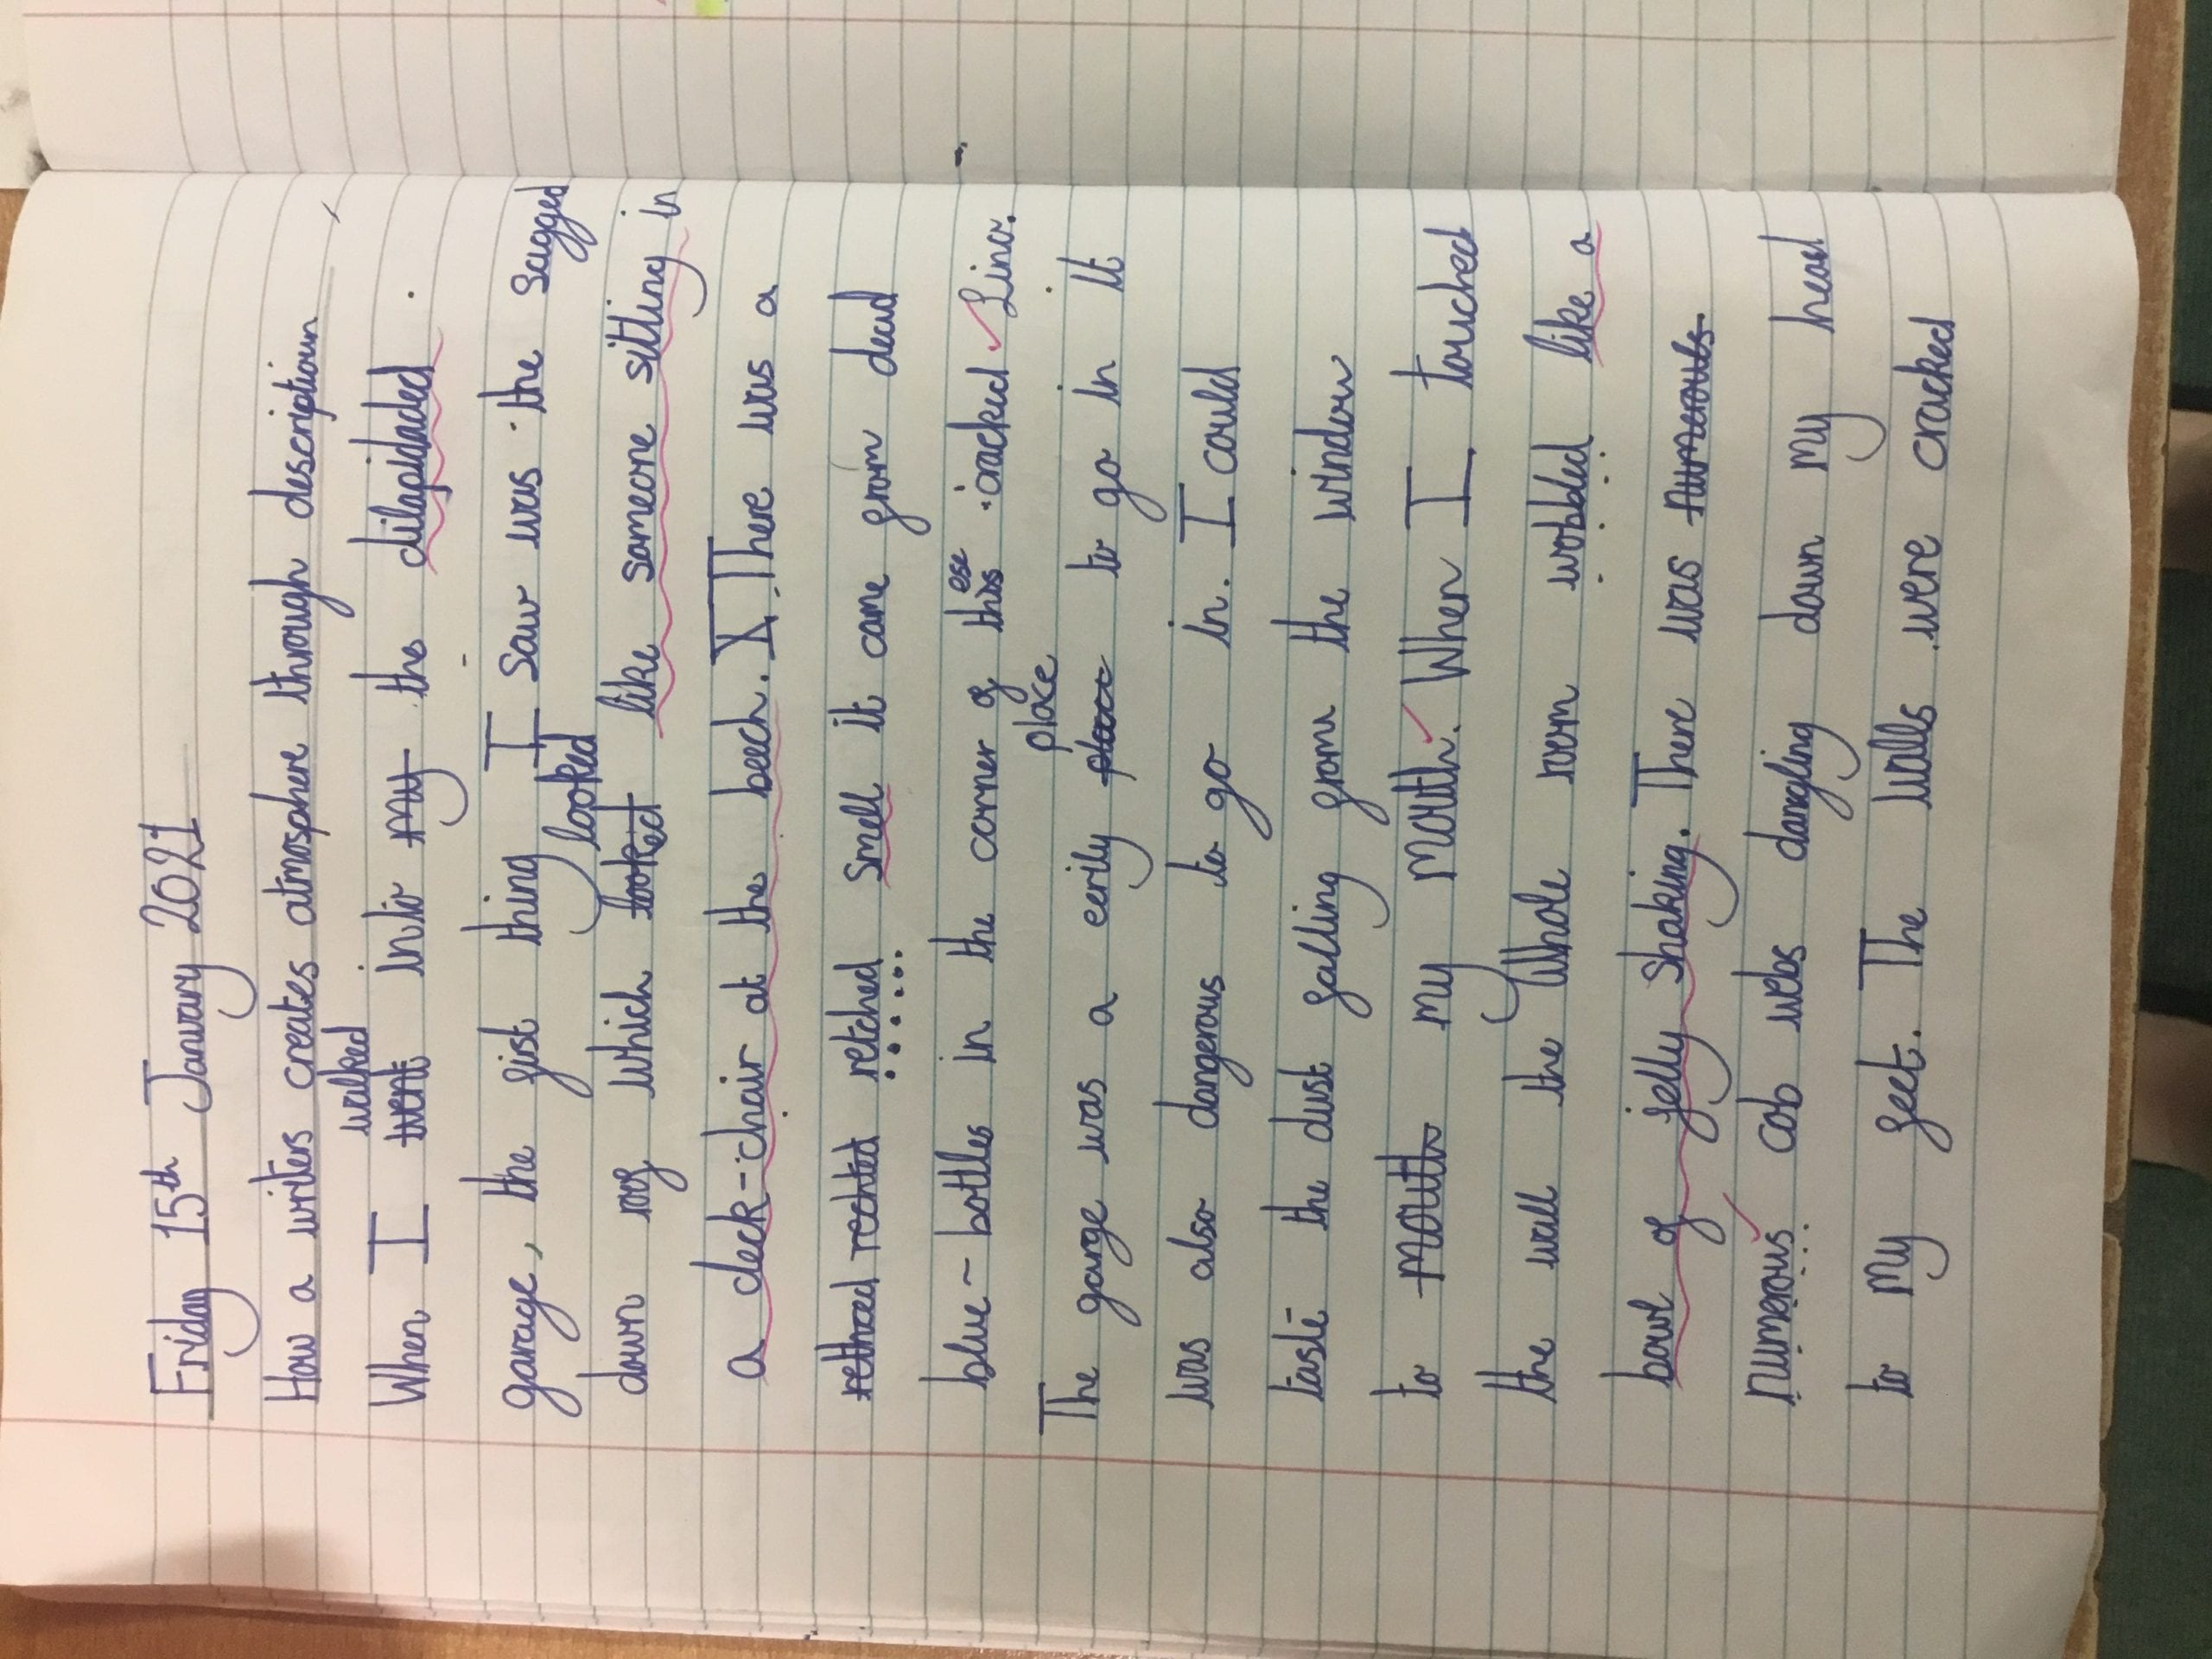 Friday 15th January 2021
How a writers creates atmosphere through description
When I went walked into my the dilapidaded
garage, the fist thing I I saw was the sagged
down roof which looked looked like someone sitting in
a deck-chair at the beech. I There was a
rethced rechted retched smell it came from dead
blue-bottles in the corner of thisese cracked Lino.
The garge was a eerily place place to go in it
was also dangerous to go in. I could
taste the dust falling from the window
to mouth my mouth. When I touched
the wall the whole room wobbled like a
bowl of jelly shaking. There was numerouls
numerous cob webs dangling down my head
to my feet. The walls were cracked